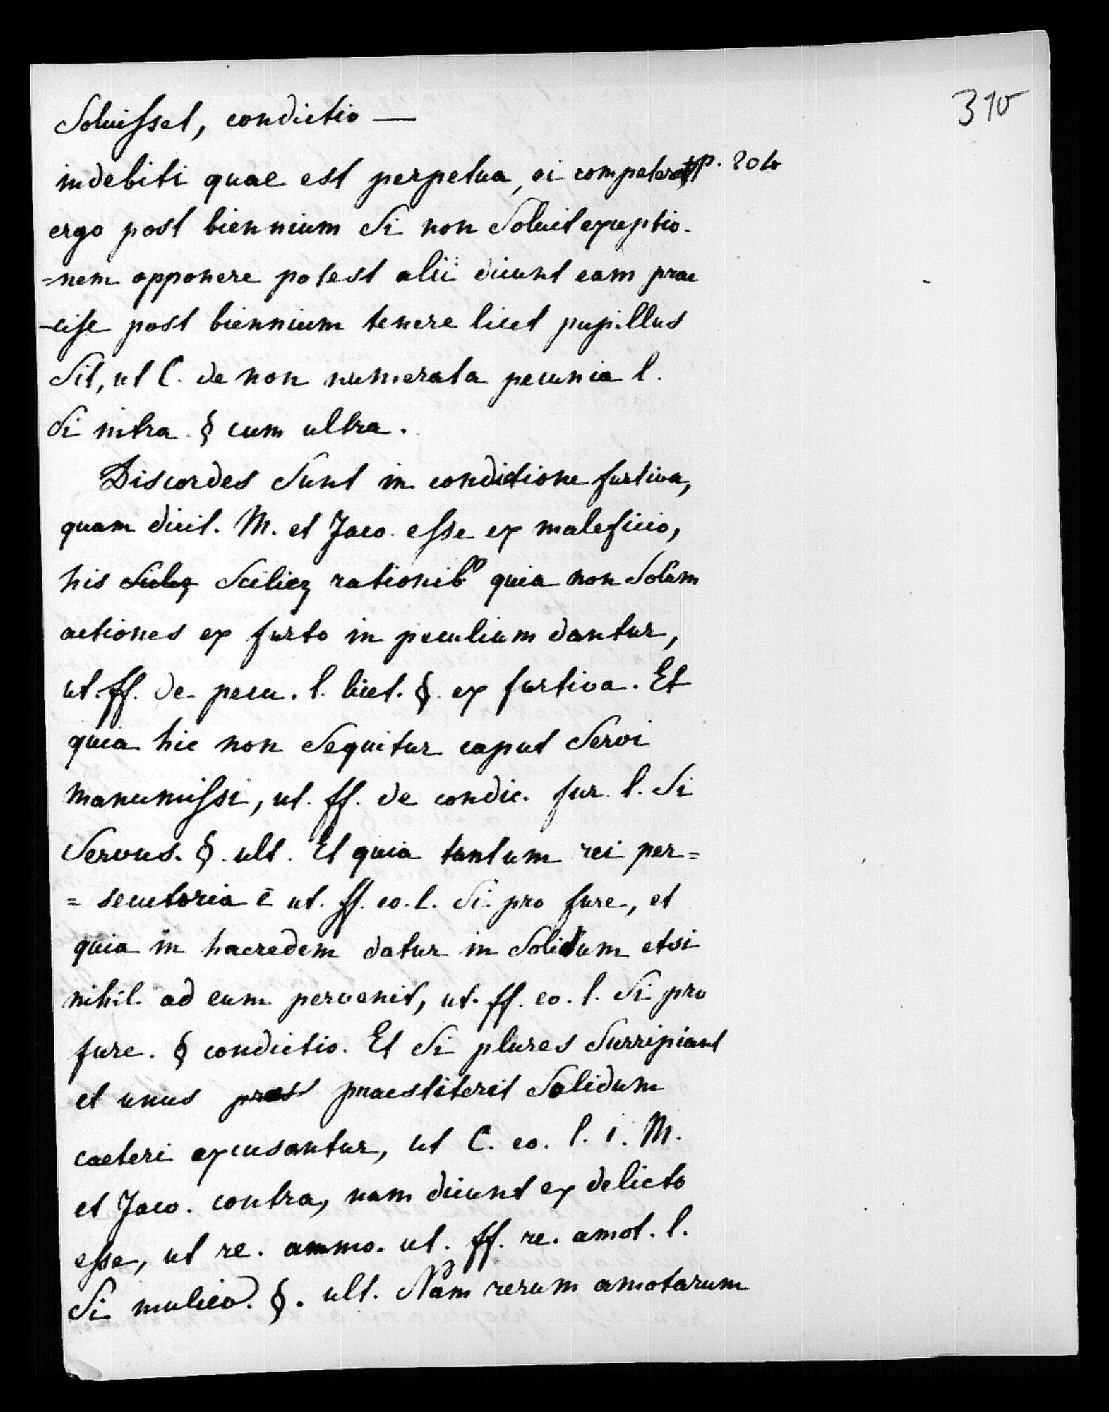 310
Soluisset, condictio —
indebiti quae est perpetua, ei competerat p. 204
ergo post biennium Si non Soluit exceptio-
=nem opponere potest alii dicunt eam prae
-cise post biennium tenere licet pupillus
Sit, ut C. de non numerata pecunia l.
Si intra § cum ultra.
Discordes Sunt in condictione furtiva,
quam dicit. M. et Jaco. esse ex maleficio,
his Scilicz rationib9 quia non Solum
actiones ex furto in peculium dantur,
ut ff. de pecu. l. licet. §. ex furtiva. Et
quia hic non Sequitur caput Servi
manumissi, ut. ff. de condic. fur. l. Si
Servus. §. ult. Et quia tantum rei per=
= secutoria ē ut. ff. eo. l. Si pro fure, et
quia in haeredem datur in Solidum etsi
nihil ad eum pervenit, ut. ff. eo. l. Si pro
fure. § condictio. Et Si plures Surripiant
et unus praest praestiterit Solidum
caeteri excusantur, ut C. eo. l. i. M.
et Jaco. contra, nam dicunt ex delicto
esse, ut re. ammo. ut. ff. re. amot. l.
Si mulier. §. ult. Nam rerum amotarum